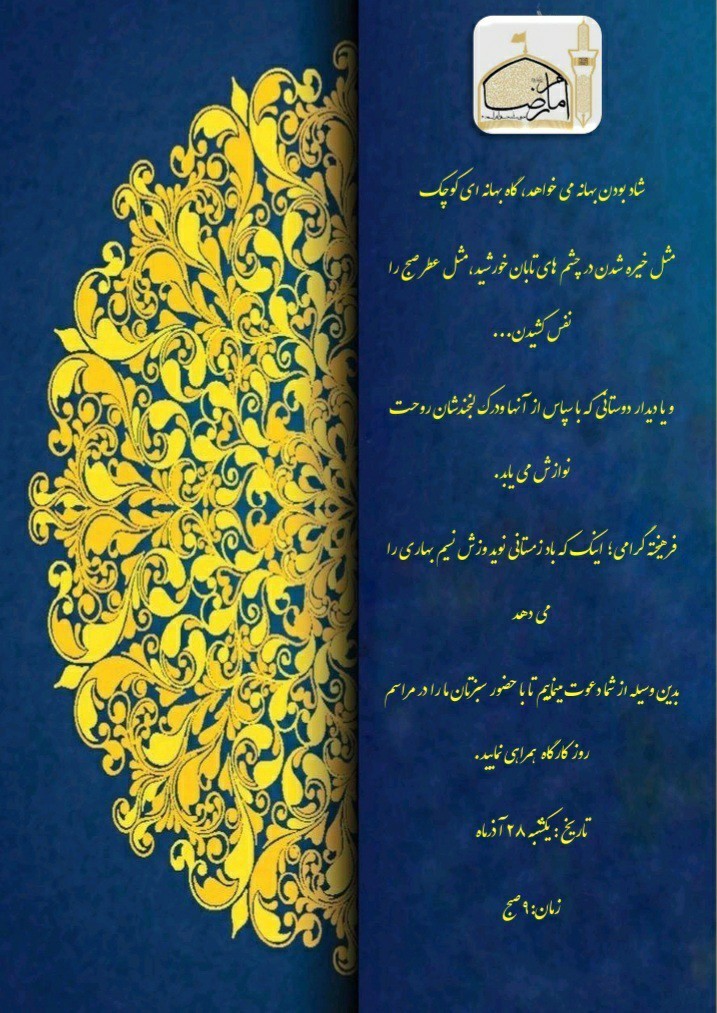 امام رضا
شاد بودن بهانه می خواهد، گاه بهانه ای کوچک
مثل خیره شدن در چشم های تابان خورشید، مثل عطر صبح را
نفس کشیدن...
و یا دیدار دوستانی که با سپاس از آنها ودرک لبخندشان روحت
نوازش می یابد.
فرهیخته گرامی؛ اینک که باد زمستانی نوید وزش نسیم بهاری را
می دهد
بدین وسیله از شما دعوت مینماییم تا با حضور سبزتان ما را در مراسم
روز کارگاه همراهی نمایید.
تاریخ: یکشنبه ۲۸ آذرماه
زمان: ۹ صبح